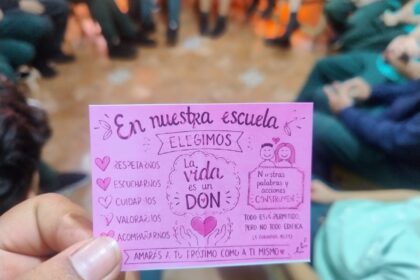 En nuestra escuela
ELEGIMOS
RESPETARNOS
ESCUCHARNOS
CUIDARNOS
VALORARNOS
ACOMPAÑARNOS
La
vida
es un
DON
Nuestras
palabras y
acciones
CONSTRUYEN
TODO ESTÁ PERMITIDO,
PERO NO TODO EDIFICA
AMARÁS A TU PRÓJIMO COMO A TI MISMO